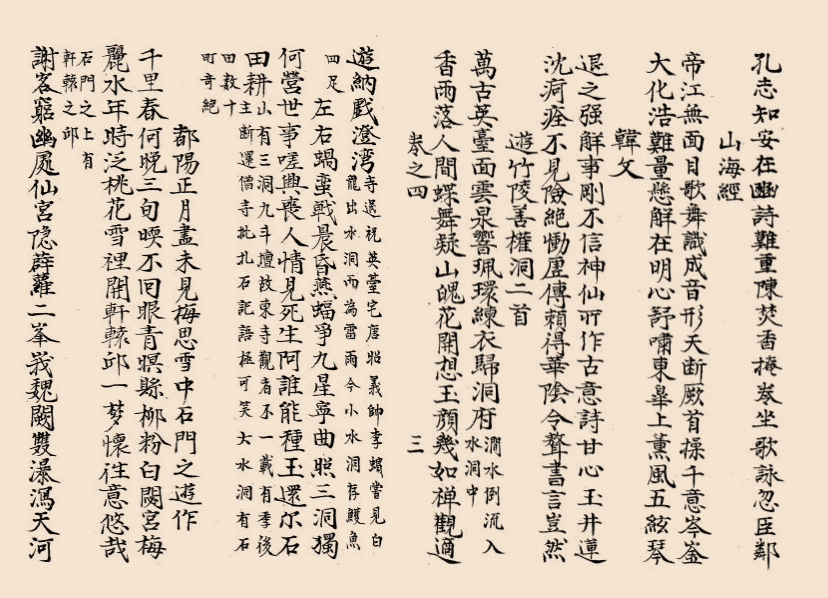 孔志知安在幽詩難重陳焚香掩卷坐歌詠忽臣鄰
山海經
帝江無面目歌舞識成音形天斷厥首操干意岑崟
大化浩難量懸解在明心舒嘯東皋上薰風五絃琴
韓文
退之强解事剛不信神仙所作古意詩甘心玉井蓮
沈痾痊不見險絕慟厓傳賴得華陰令聱書言豈然
遊竹陵善權洞二首
萬古英臺面雲泉響珮環練衣歸洞府澗水倒流入水洞中
香雨落人間蝶舞疑山魄花開想玉顏幾如禪觀適
卷之四 三
遊納戲澄灣寺遇祝英臺宅唐昭義帥李蠙嘗見白龍出水洞而為雷雨今小水洞存鱧魚
四足 左右蝸蠻戰晨昏燕蝠爭九星寧曲照三洞獨
何營世事嗟興喪人情見死生阿誰能種玉還尔石
田耕山有三洞九斗壇故東寺觀者不一載有李後主斷還僧寺批扎石記語極可笑大水洞有石
田数十町奇絕
鄀陽正月盡未見梅思雪中石門之遊作
千里春何晚三旬暎不回眼青暝縣柳粉白闕宮梅
麗水年時泛桃花雪裡開軒轅邱一夢懷往意悠哉
石門之上有軒轅之邱
謝客窮幽處仙宮隐薜蘿二峯羙魏闕雙瀑瀉天河